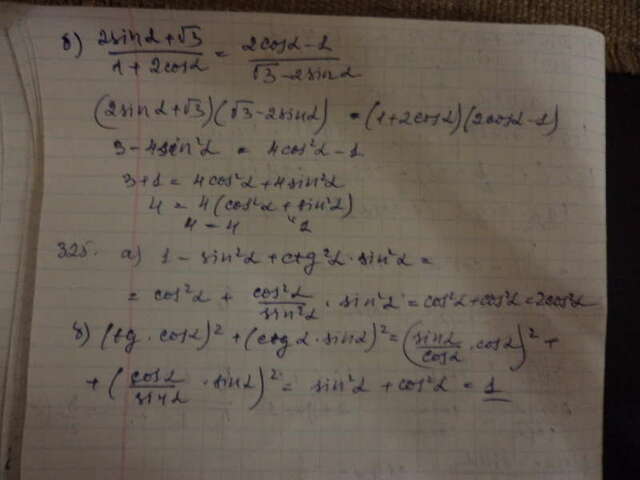 б) (2sinα+√3)/(1+2cosα) = (2cosα-1)/(√3-2sinα)
(2sinα+√3)(√3-2sinα) = (1+2cosα)(2cosα-1)
3-4sin²α = 4cos²α-1
3+1 = 4cos²α+4sin²α
4 = 4(cos²α+sin²α)
4 = 4 "1
325. а) 1 - sin²α + ctg²α · sin²α =
= cos²α + cos²α/sin²α · sin²α = cos²α+cos²α = 2cos²α
б) (tg · cosα)² + (ctgα · sinα)² = (sinα/cosα · cosα)² +
+ (cosα/sinα · sinα)² = sin²α + cos²α = 1